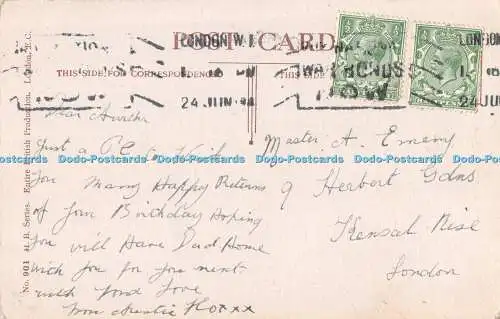 POST CARD
LONDON.W.1
LONDON.W
BUY NATIONAL
WAR BONDS
NOW
24 JUN
24 JUN
THIS SIDE FOR CORRESPONDENCE
THIS SIDE
No. 901 At. B. Series. Entire British Production. London, E.C.
Dear
Just a PC to Wish
you Many Happy Returns
of your Birthday Hoping
you will Have Dad Home
with you for you next
with fond Love
from Auntie Flo xxx
Master A. Emery
9 Herbert Gdns
Kensal Rise
London
Dodo-Postcards Dodo-Postcards Dodo-Postcards Dodo-Postcards Dodo-Postcards Dodo-Postcards